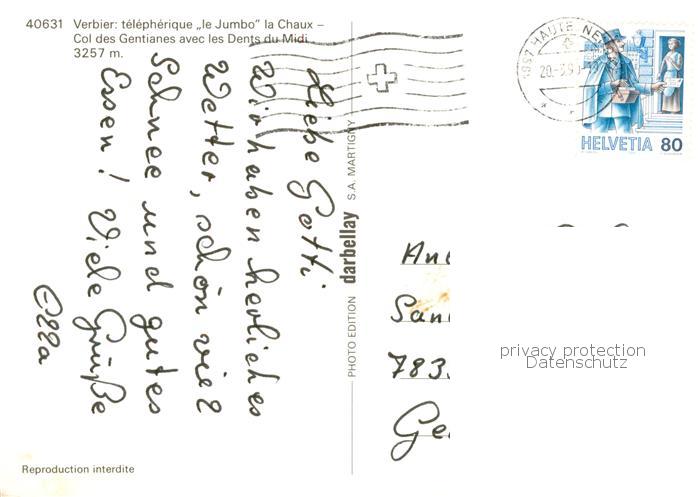 40631 Verbier: téléphérique „le Jumbo" la Chaux –
Col des Gentianes avec les Dents du Midi
3257 m.
Liebe Gotti
Wir haben herliches
Wetter, schön viel
Schnee und gutes
Essen! Viele Grüße
Ella
PHOTO EDITION darbellay S.A. MARTIGNY
1997 HAUTE NE
20.-3.9
HELVETIA 80
San
783
Ge
privacy protection
Datenschutz
Reproduction interdite